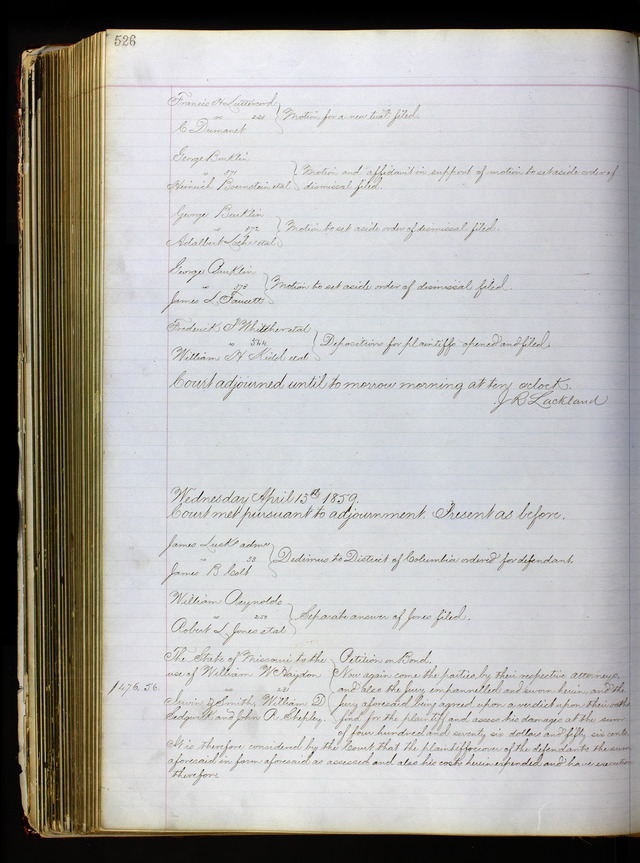 526
Francis H Luttecord
" 221 } Motion for a new trial filed.
C Dumanet
George Bucklin
" 571 } Motion and affidavit in support of motion to set aside order of
Heinrich Boernstein etal dismissal filed.
George Bucklin
" 572 } Motion to set aside order of dismissal filed.
Adalbert etal
George Bucklin
" 573 } Motion to set aside order of dismissal filed.
James L Faucett
Frederick T Whitther etal
" 544 } Depositions for plaintiffs opened and filed.
William H Kidel etal
Court adjourned until tomorrow morning at ten oclock.
J R Lackland
Wednesday April 13th 1859.
Court met pursuant to adjournment. Present as before.
James Lusk admr
" 53 } Dedimus to District of Columbia ordered for defendant.
James B Colt
William Reynolds
" 250 } Separate answer of Jones filed.
Robert L Jones etal
The State of Missouri to the } Petition on Bond.
use of William W Haydon Now again come the parties by their respective attorneys,
$476.56. " 221 and also the jury empannelled and sworn herein, and the
Irwin Z Smith, William D jury aforesaid being agreed upon a verdict upon their oaths
and John R Shepley. find for the plaintiff and assess his damages at the sum
of four hundred and seventy six dollars and fifty six cents.
It is therefore considered by the Court that the plaintiff recover of the defendants the sum
aforesaid in form aforesaid as assessed and also his costs herein expended and have execution
therefore